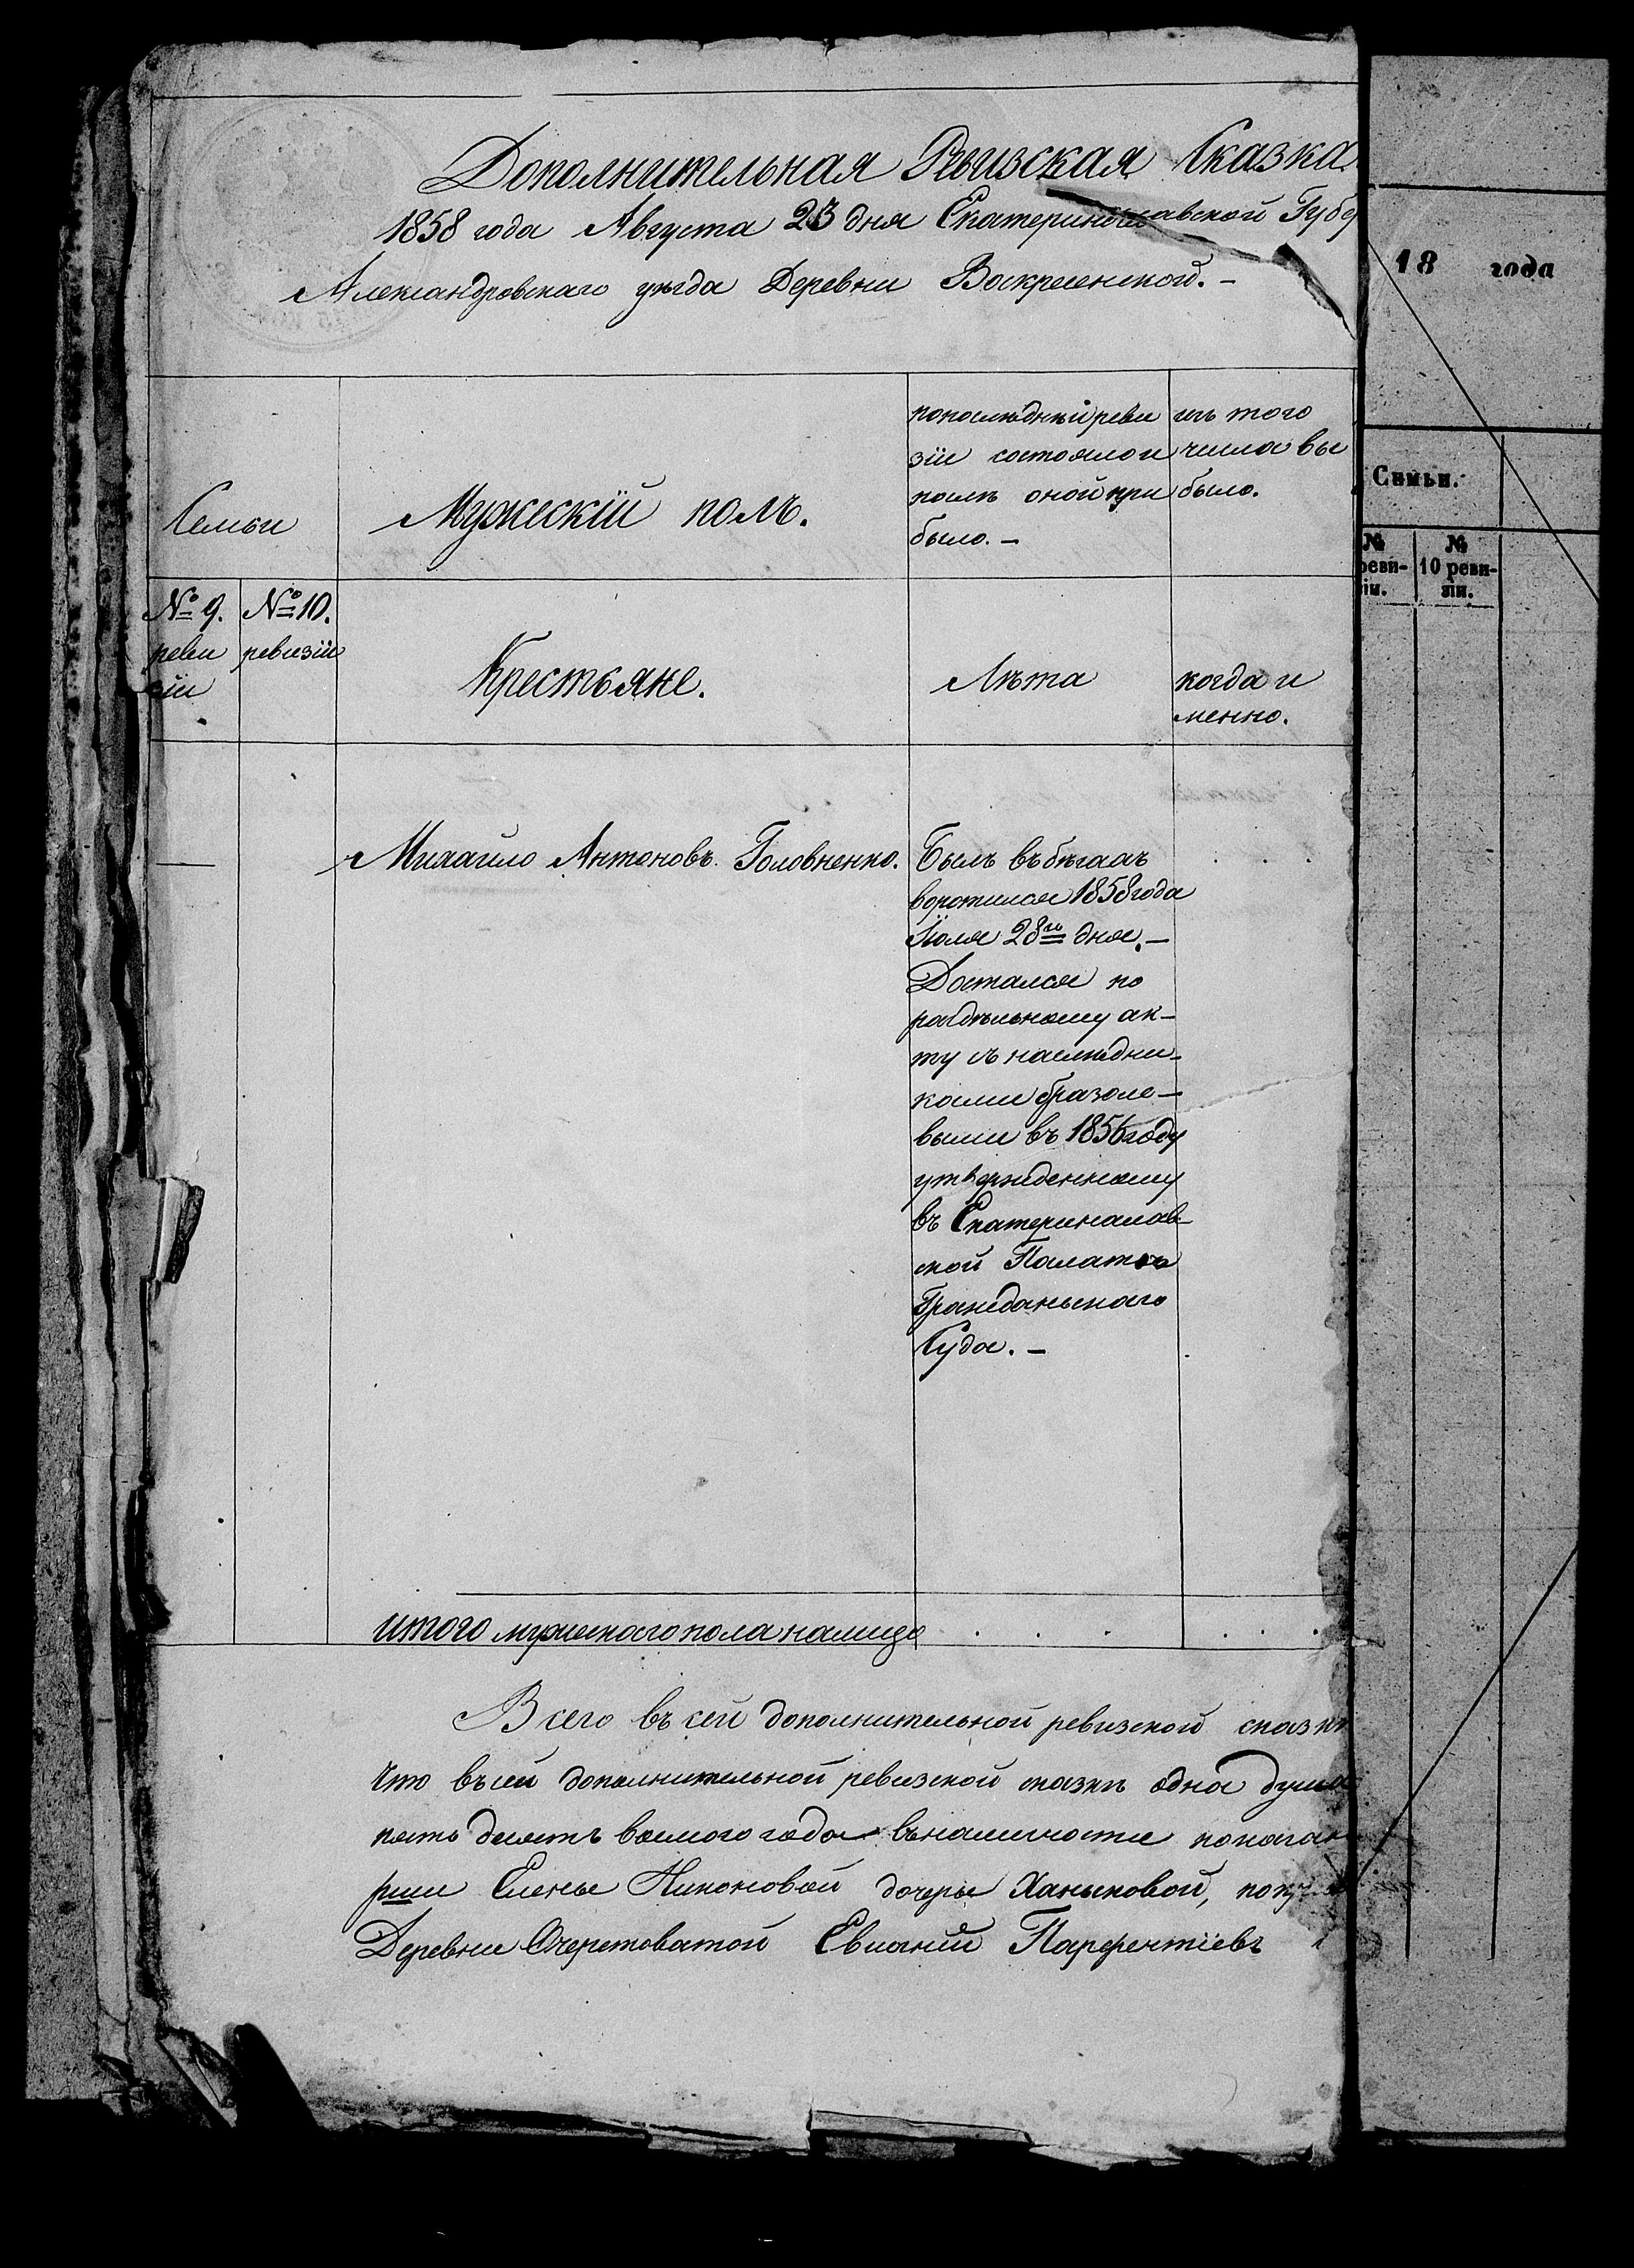 Дополнительная Ревизская Сказка
1858 года Августа 23 дня Екатеринославской Губер
Александровскаго уѣзда Деревни Воскресенской. –
Семьи
Мужескій полъ.
попослѣдній реви
зіи состояло и
послѣ оной при
было. –
изъ того
числа вы
было.
№ 9.
реви
зіи
№ 10.
ревизіи
Крестьяне.
Лѣта
когда и
менно.
Михайло Антоновъ Головненко.
Былъ въ бѣгахъ
воротился 1858 года
Іюля 28го дня. –
Достался по
раздѣльному ак-
ту съ наслѣдни-
ками Бразоле-
выми въ 1856 году
утвержденному
въ Екатеринослав-
ской Палатѣ
Гражданскаго
Суда. –
итого мужескаго пола налицо
Всего въ сей дополнительной ревизской сказкѣ
Что въ сей дополнительной ревизской сказкѣ одна душа
пять десятъ восмого года въ наличности
Еленѣ Никоновой дочери Ханыковой,
Деревни Очеретоватой Парфентіевъ
18 года
Семьи.
№
реви-
зіи.
№
10 реви-
зіи.